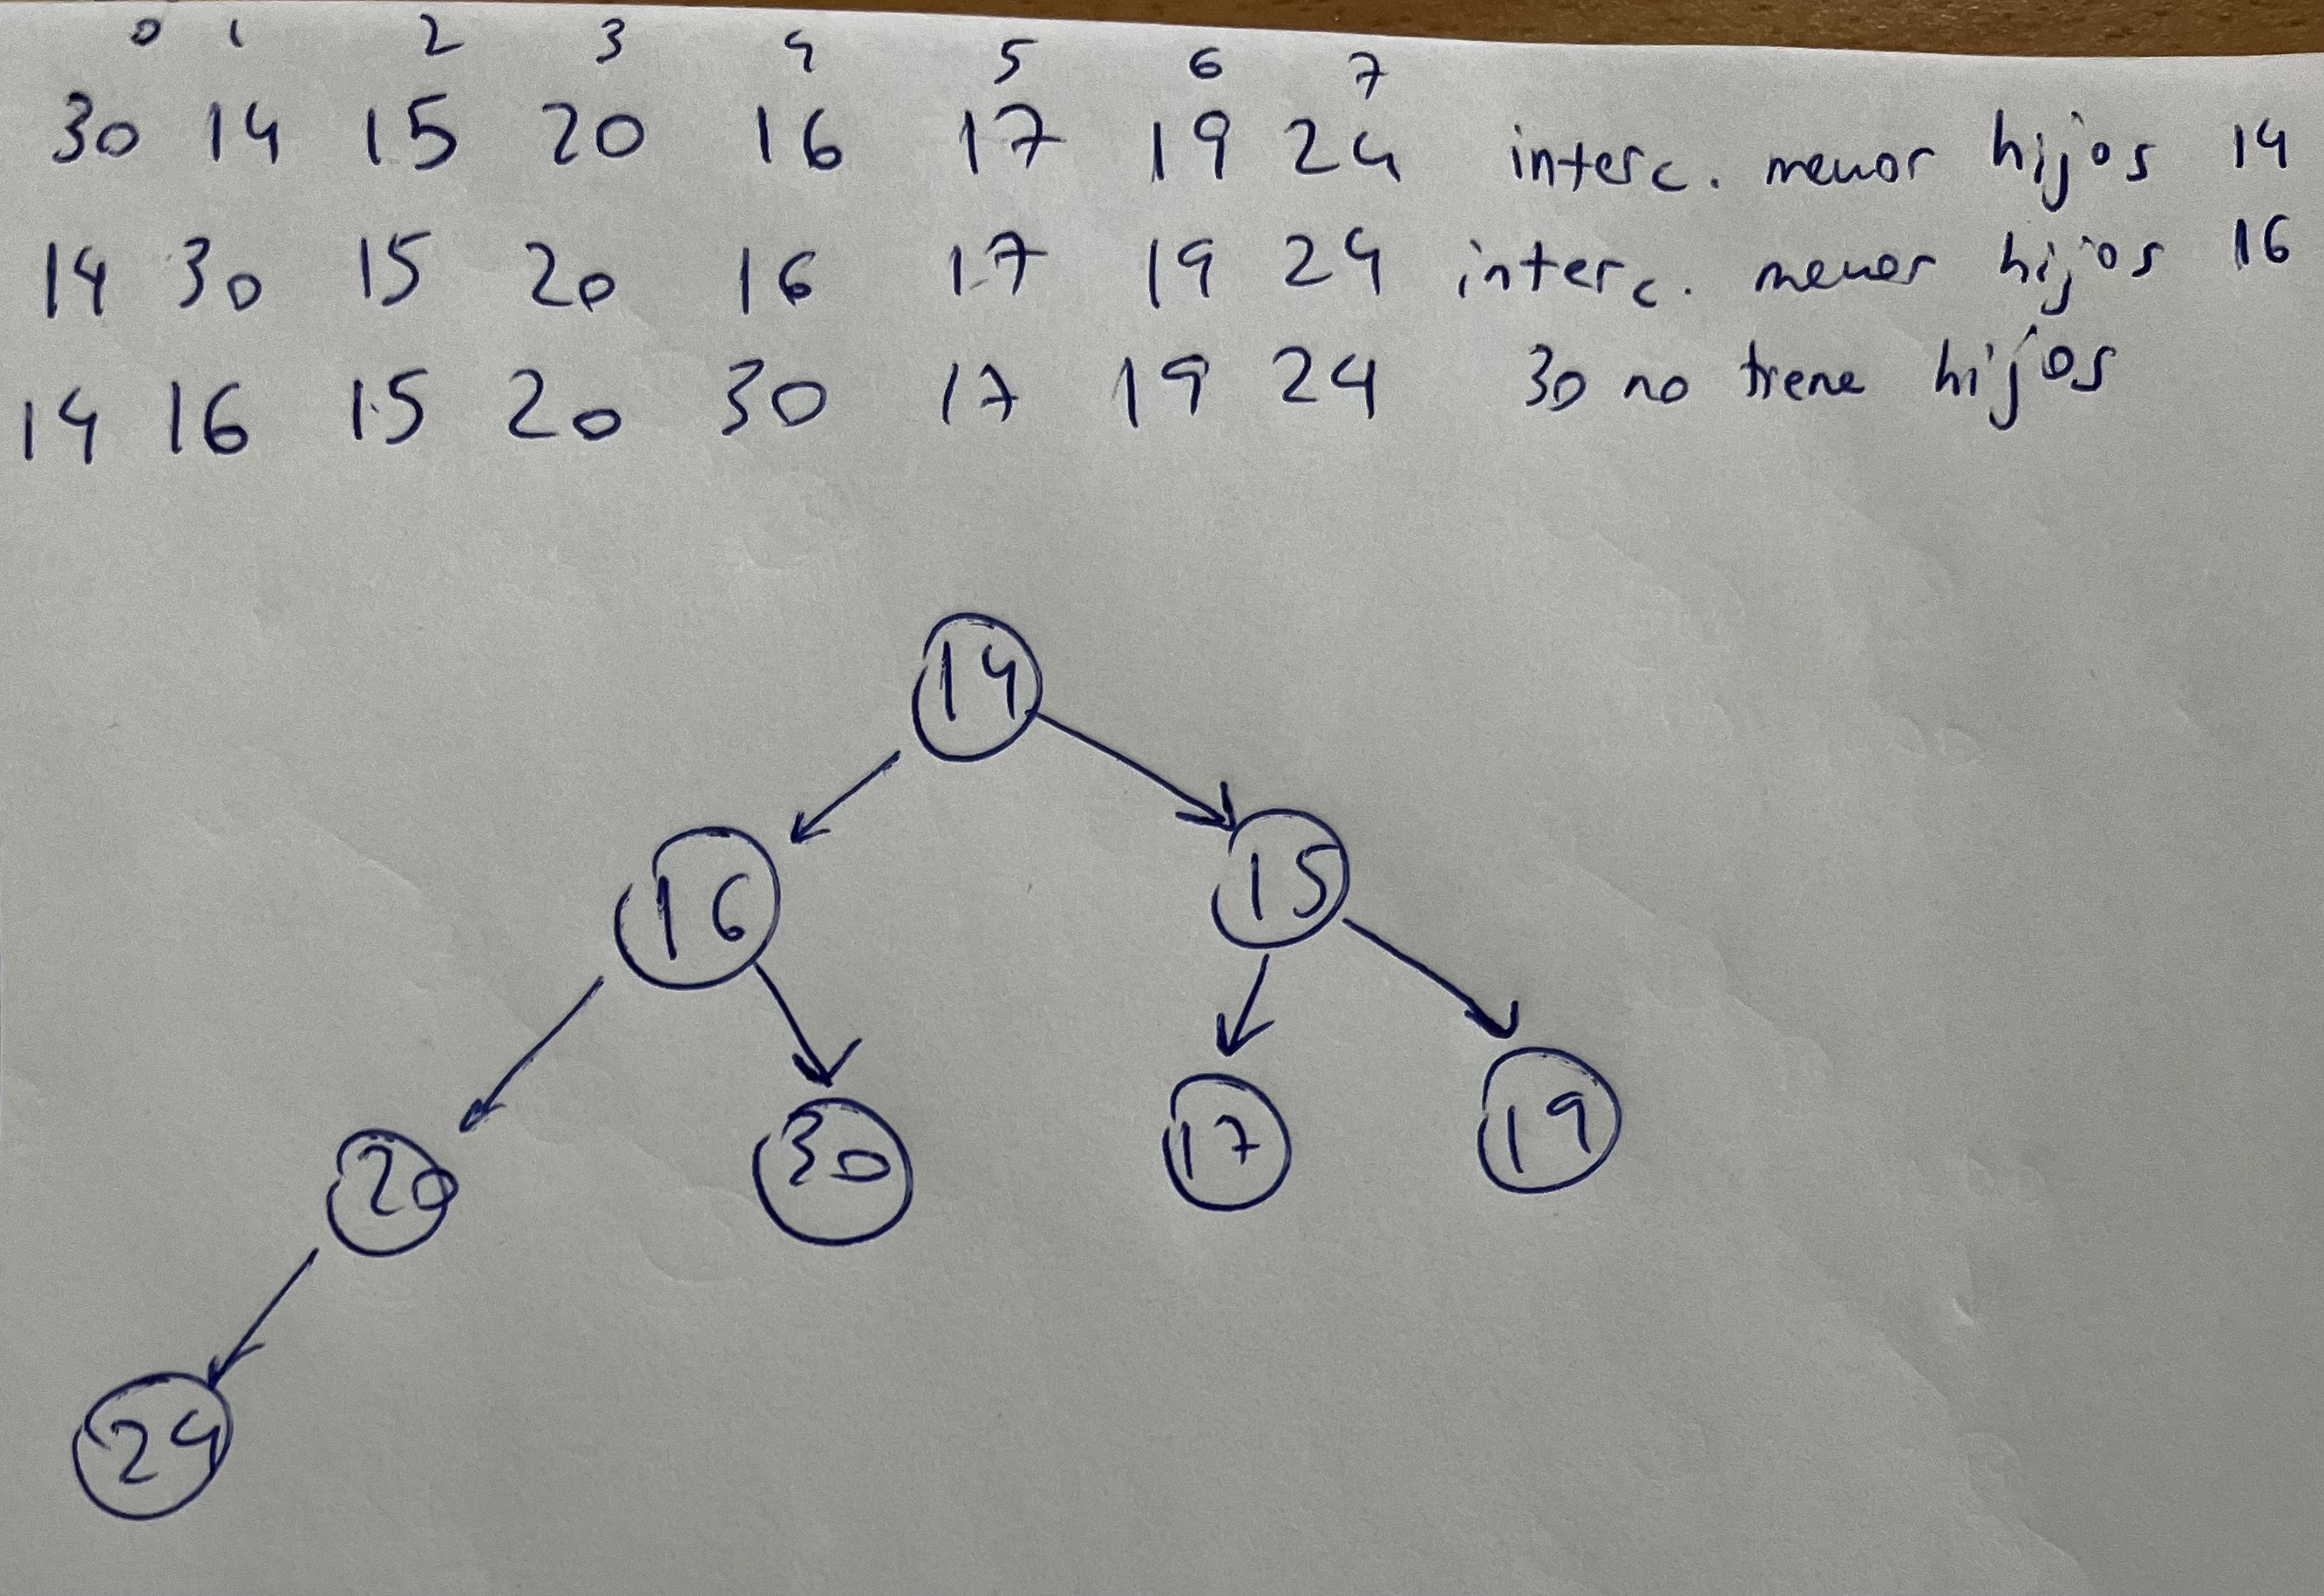 0 1 2 3 4 5 6 7
30 14 15 20 16 17 19 24 interc. menor hijos 14
14 30 15 20 16 17 19 24 interc. menor hijos 16
14 16 15 20 30 17 19 24 30 no tiene hijos
14
16 15
20 30 17 19
24